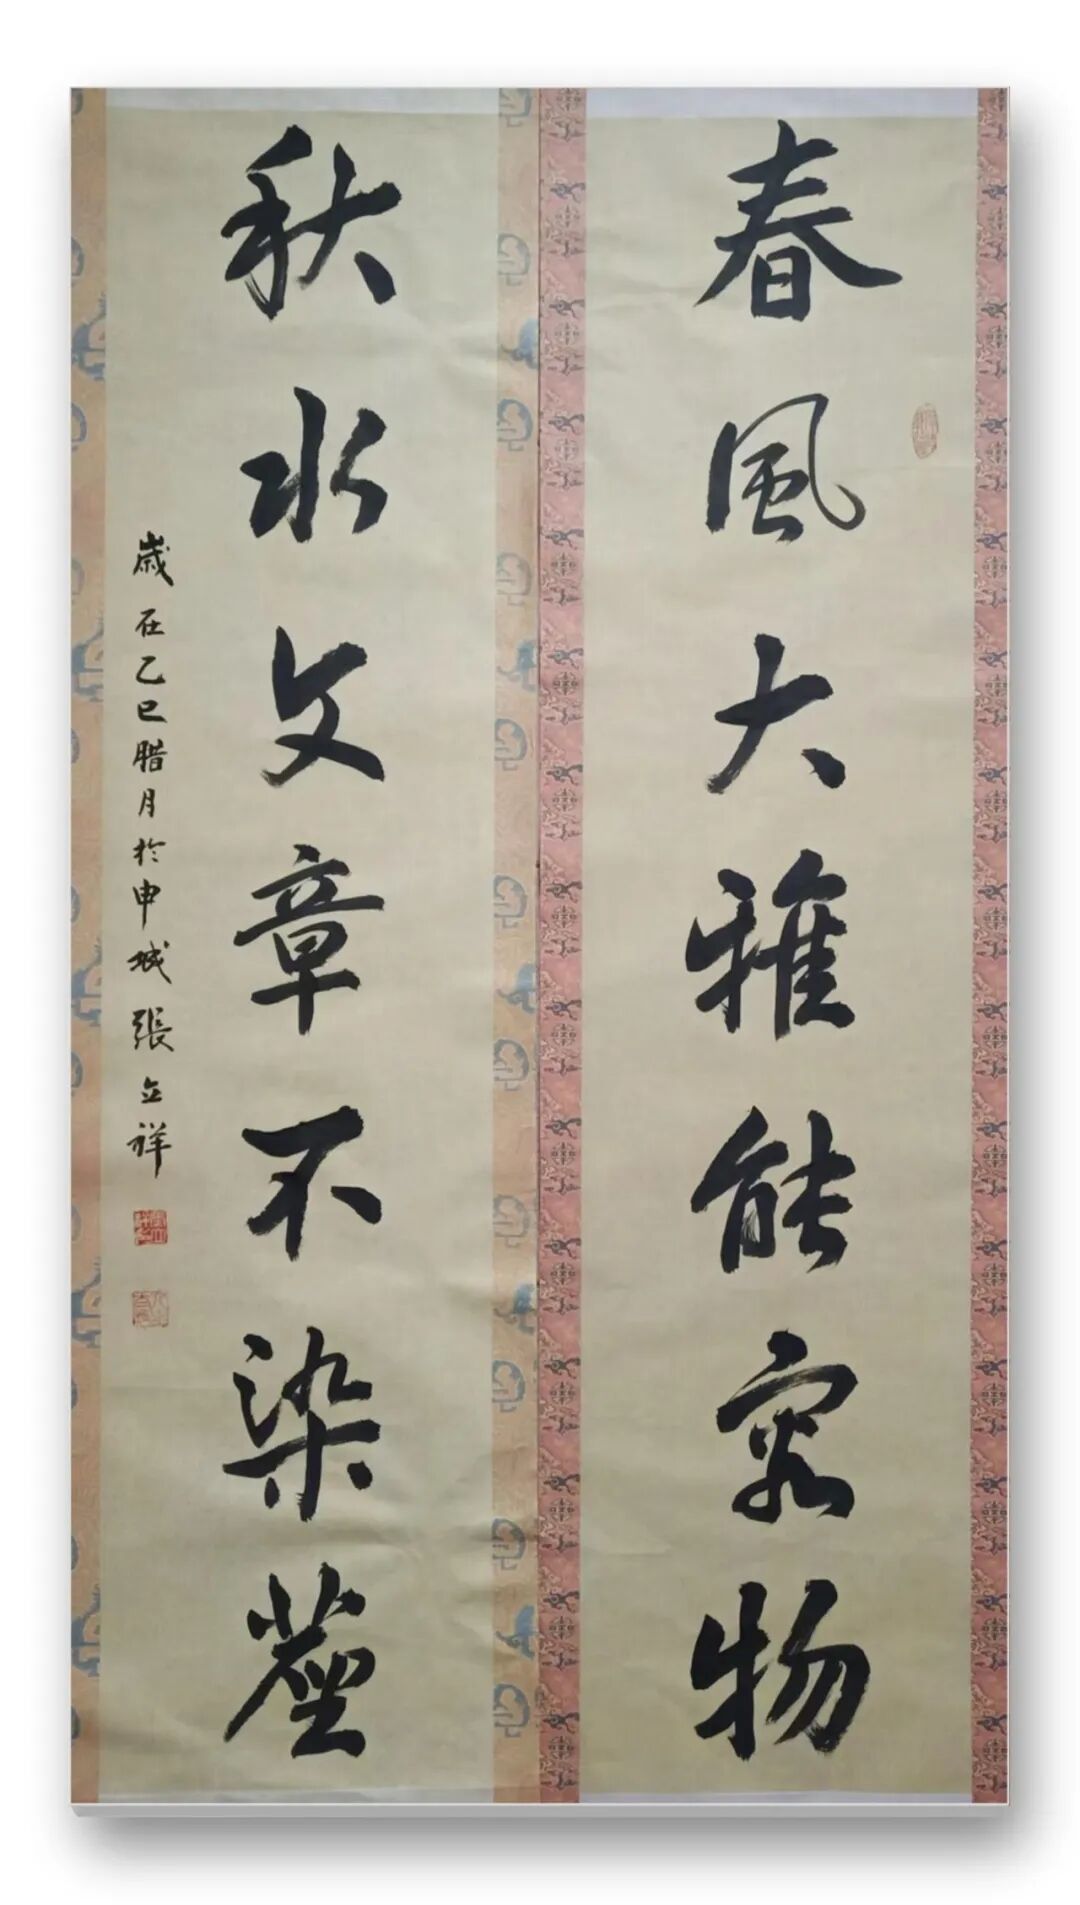 春風大雅能容物
秋水文章不染塵
歲在乙巳腊月於申城張立祥